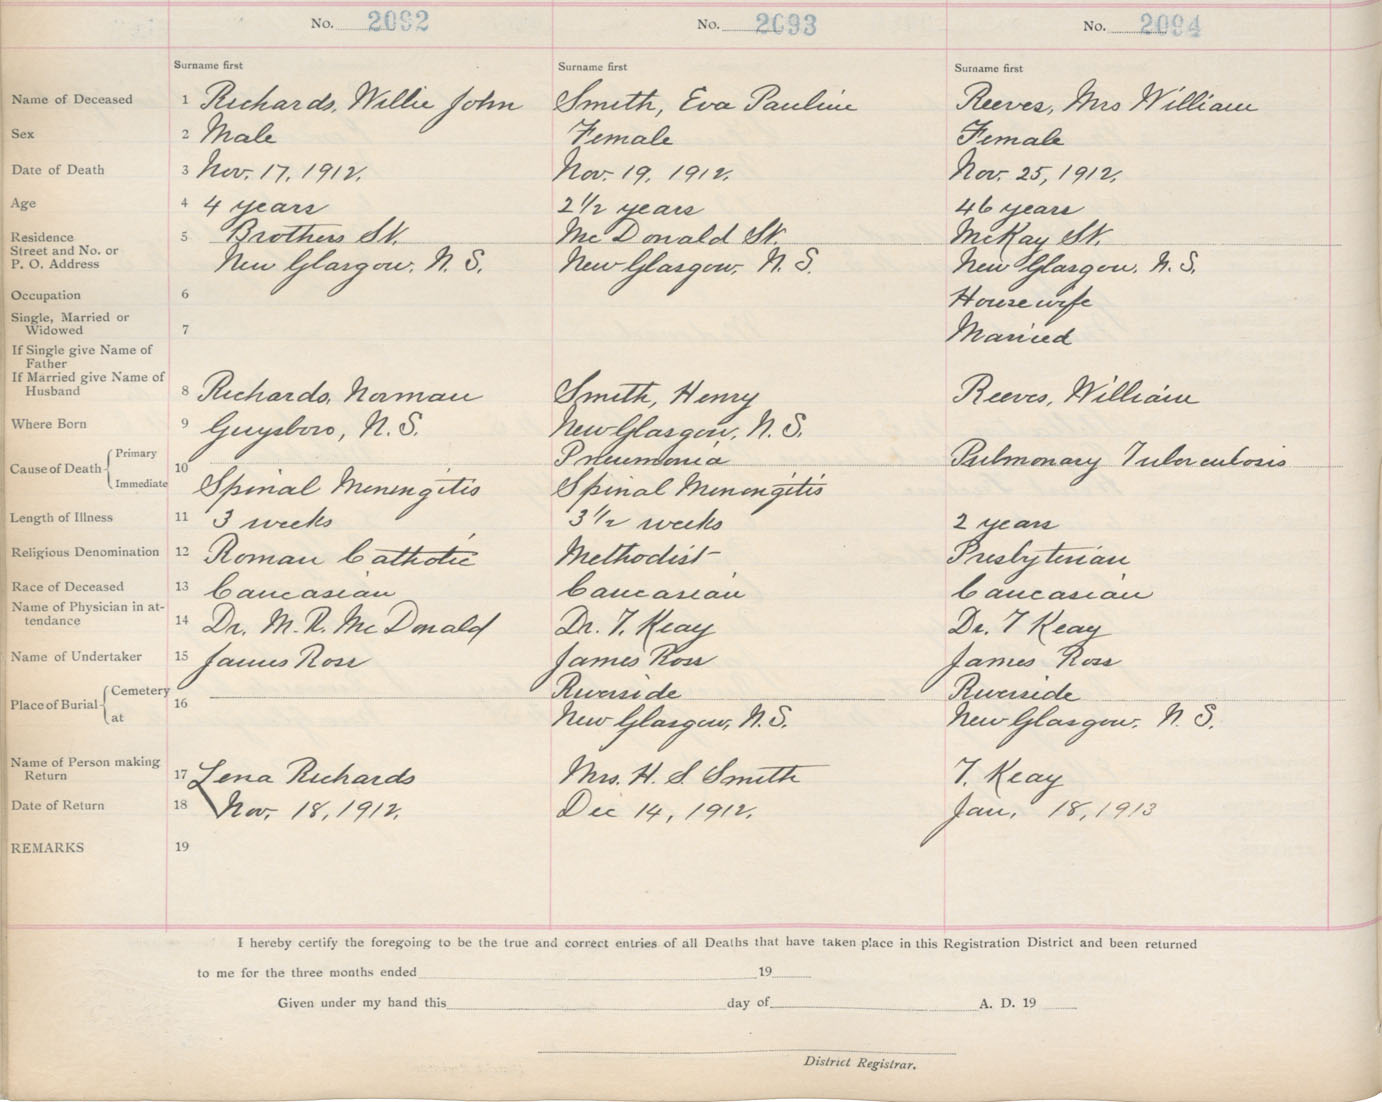 No. 2092 No. 2093 No. 2094
Surname first Surname first Surname first
Name of Deceased 1 Richards, Willie John Smith, Eva Pauline Reeves, Mrs William
Sex 2 Male Female Female
Date of Death 3 Nov. 17, 1912. Nov. 19, 1912. Nov. 25, 1912.
Age 4 4 years 2 1/2 years 46 years
Residence 5 Brothers St. McDonald St. McKay St.
Street and No. or
P. O. Address New Glasgow, N. S. New Glasgow, N. S. New Glasgow, N. S.
Occupation 6 Housewife
Single, Married or
Widowed 7 Married
If Single give Name of
Father
If Married give Name of
Husband 8 Richards, Norman Smith, Henry Reeves, William
Where Born 9 Guysboro, N. S. New Glasgow, N. S.
Cause of Death Primary 10 Pneumonia Pulmonary Tuberculosis
Immediate Spinal Meningitis Spinal Meningitis
Length of Illness 11 3 weeks 3 1/2 weeks 2 years
Religious Denomination 12 Roman Catholic Methodist Presbyterian
Race of Deceased 13 Caucasian Caucasian Caucasian
Name of Physician in at-
tendance 14 Dr. M. R. McDonald Dr. T. Keay Dr. T Keay
Name of Undertaker 15 James Ross James Ross James Ross
Place of Burial Cemetery 16 Riverside Riverside
at New Glasgow, N. S. New Glasgow, N. S.
Name of Person making
Return 17 Lena Richards Mrs. H. S. Smith T. Keay
Date of Return 18 Nov. 18, 1912. Dec 14, 1912. Jan. 18, 1913
REMARKS 19
I hereby certify the foregoing to be the true and correct entries of all Deaths that have taken place in this Registration District and been returned
to me for the three months ended 19
Given under my hand this day of A. D. 19
District Registrar.